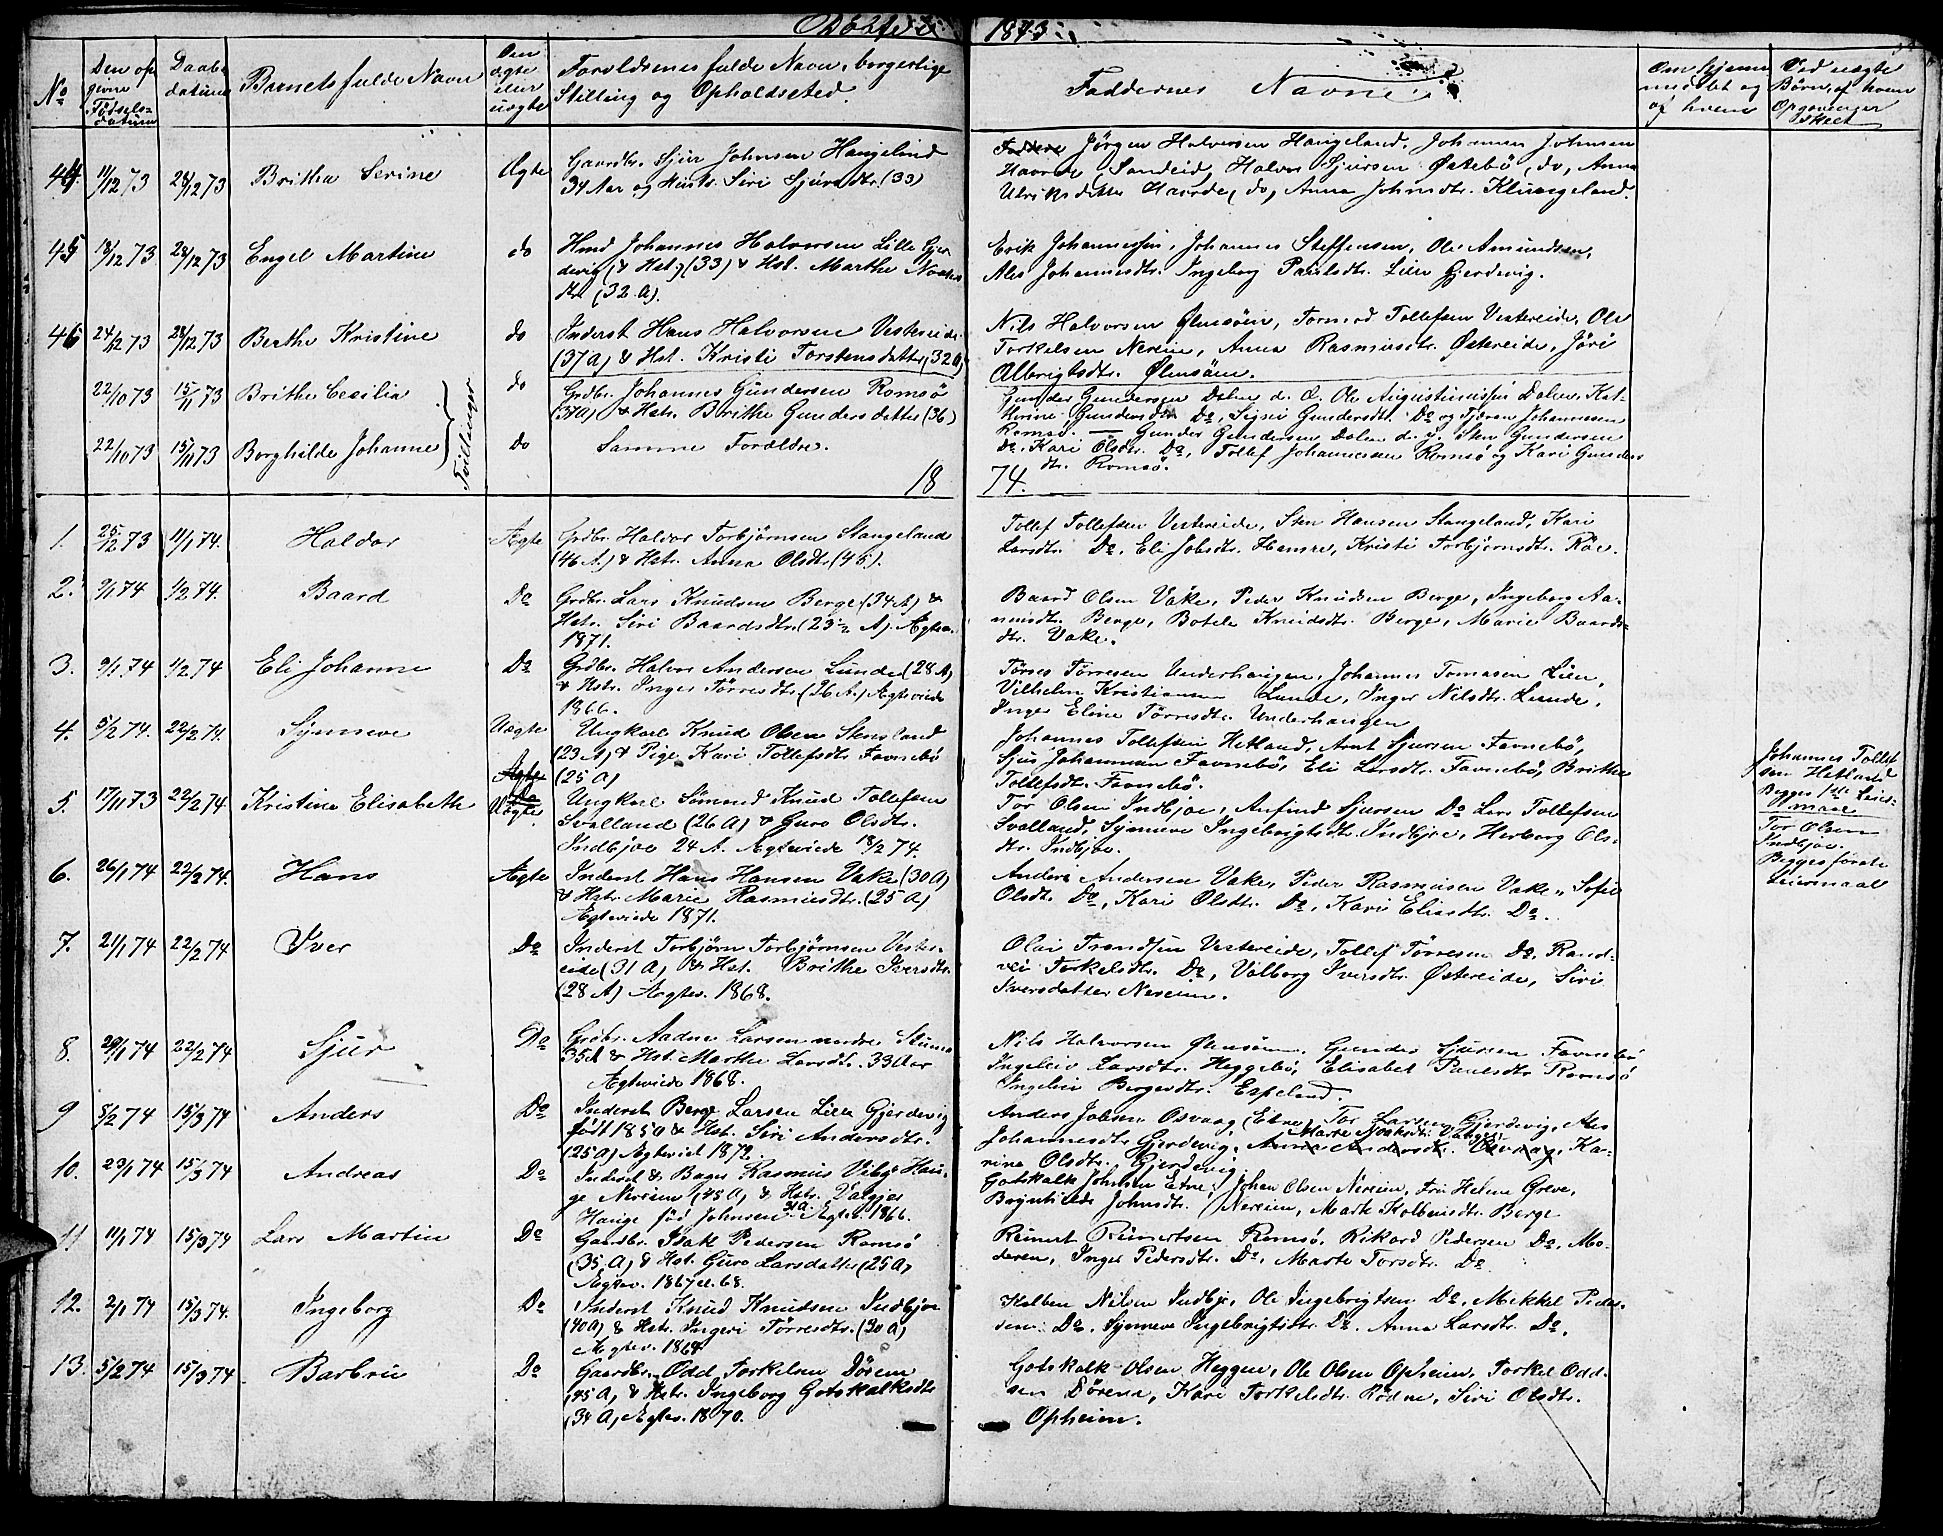 Döbte 1873.
No
Den opgivne Fødselsdatum
Daabsdatum
Barnets fulde Navn
Om ægte eller uægte
Forældrenes fulde Navn, borgerlige Stilling og Opholdssted.
Faddernes Navne.
Om hjemmedöbt og af hvem
Ved uægte Børn, af hvem Opgavenger skeet
44. 11/12 73 28/12 73 Britha Serine Ægte
Gaardbr. Sjur Johnsen Haugeland
34 Aar og Hustr. Siri Sjursdtr. (33)
Jørgen Halvorsen Haugeland, Johannes Johnsen
Havrde Sandeid, Halvor Sjursen Østebö, do, Anna
Ulriksdatter Havrde, do, Anna Johnsdtr. Klungeland.
45 18/12 73 28/12 73 Engel Martine do
Hmd Johannes Halvorsen Lille Gjer
devig (& Hst) (33) & Hst. Marthe
dtr (32 A).
Erik Johannessen, Johannes Steffensen, Ole Amundsen,
Ales Johannesdtr. Ingeborg Paulsdtr. Lille Gjerdevig.
46 24/12 73 28/12 73 Berthe Kristine do
Inderst Hans Halvorsen Vestereide
(37 A) & Hst. Kristi Torstensdatter (32 A)
Nils Halvorsen Ølensöen, Tormod Tollefsen Vestereide, Ole
Torkelsen Nereim, Anna Rasmusdtr. Østereide, Jöri
Albrigtsdtr. Ølensöen.
22/10 73 15/11 73 Brithe Cecilia do
Tvillinger
Grdbr. Johannes Gundersen Romsö
(37 A) & Hstr. Brithe Gundersdatter (36)
Gunder Gundersen Dalen d. æ. Ole Augustinussen Dalen, Kat-
thrine Gundersdtr. Do, Signi Gundersdtr. Do og Tjeran Johannessen
Romsö. — Gunder Gundersen Dalen d. y. Sten Gundersen
22/10 73 15/11 73 Borghilde Johanne do
Samme Forældre.
Do, Kari Olsdtr. Do, Tollef Johannessen Romsö og Kari Gunders
dtr. Romsö.
1874.
1. 25/12 73 11/1 74. Haldor Ægte
Grdbr. Haldor Torbjörnsen Stangeland
(46 A.) & Hstr. Anna Olsdtr. (45).
Tollef Tollefsen Vestereide, Sten Hansen Stangeland, Kari
Larsdtr. Do, Eli Jobsdtr. Hamre, Kristi Torbjörnsdtr. Röe.
2. 9/1 74 1/2 74. Baard Do
Grdbr. Lars Knudsen Berge (34 A) &
Hstr. Siri Baardsdtr. (23 1/2 A). Ægtev.
1871.
Baard Olsen Vake, Peder Knudsen Berge, Ingeborg Aa-
musdtr. Berge, Botele Knudsdtr. Berge, Marie Baards-
dtr. Vake.
3. 9/1 74 1/2 74 Eli Johanne Do
Grdbr. Halvor Andersen Lunde (28 A)
& Hstr. Inger Törresdtr. (26 A.) Ægteviede
1866.
Törres Törresen Underhaugen, Johannes Tomasen Lien,
Vilhelm Kristiansen Lunde, Inger Nilsdtr. Lunde,
Inger Eline Törresdtr. Underhaugen
4. 5/2 74. 22/2 74. Synneve Uægte
Ungkarl Knud Olsen Stensland
(23 A) & Pige Kari Tollefsdtr. Favnebö
(25 A)
Johannes Tollefsen Hetland, Arnt Sjursen Favnebö,
Sjur Johannesen Favnebö, Eli Larsdtr. Favnebö, Brithe
Tollefsdtr. Favnebö.
Johannes Tollef
sen Hetland
Begges 1ste Leier-
maal
5. 17/11 73 22/2 74. Kristine Elisabeth Uægte
Ungkarl Sömand Knud Tollefsen
Svalland (26 A) & Guro Olsdtr.
Indbjoe 24 A. Ægteviede 18/2 74.
Tor Olsen Indbjoe, Anfind Sjursen Do Lars Tollefsen
Svalland, Synneve Ingebrigtsdtr. Indbjoe, Herborg Ols-
dtr. Indbjoe.
Tor Olsen
Indbjoe.
Begges förste
Leiermaal
6. 26/1 74 22/2 74. Hans Ægte
Inderst Hans Hansen Vake (30 A)
& Hstr. Marie Rasmusdtr. (25 A)
Ægteviede 1871.
Anders Andersen Vake, Peder Rasmusen Vake, Sofie
Olsdtr. Do, Kari Olsdtr. Do, Kari Eliasdtr. Do.
7. 21/1 74 22/2 74 Iver Do
Inderst Torbjörn Torbjörnsen Vester-
eide (31 A) & Hst. Brithe Iversdtr.
(28 A) Ægtev. 1868.
Olai Trondsen Vestereide, Tollef Törresen Do, Rand-
vei Torkelsdtr. Do, Valborg Iversdtr. Østereide, Siri
Iversdatter Nereim.
8. 29/1 74 22/2 74 Sjur Do
Grdbr. Aadne Larsen nedre
35 A & Hst. Marthe Larsdtr. 33 Aar
Ægteviede 1868.
Nils Halvorsen Ølensöen, Gunder Sjursen Favnebö
Ingeleiv Larsdtr. Heggebö, Elisabet Paulsdtr. Romsö
Ingelev Bergesdtr. Espeland.
9 5/2 74 15/3 74 Anders Do
Inderst Berge Larsen Lille Gjerdevig
født 1850 & Hst. Siri Andersdtr.
(25 A) Ægteviet 1872.
Anders Jobsen Osvaag (Etne), Tor Larsen Gjerdevig, Ales
Johannesdtr. Gjerdevig, Anna Andersdtr. Osvaag, Ka-
rine Olsdtr. Gjerdevig.
10. 29/1 74 15/3 74 Andreas Do
Inderst & Bager Rasmus Viby Hau-
ge Nereim (48 A) & Hstr. Valgjer
Hauge föd Johnsen 31 A. Ægtev. 1866.
Gotskalk Johnsen Etne, Johan Olsen Nereim, Fru Helene Greve,
Bryntilde Johnsdtr. Nereim, Marte Kolbensdtr. Berge
11 11/1 74 15/3 74 Lars Martin Do
Gaardbr. Isak Pedersen Romsö
(35 A) & Hst. Guro Larsdatter (25 A)
Ægtev. 1867 el. 68.
Reinert Reinertsen Romsö, Rikard Pedersen Do, Mo-
deren, Inger Pedersdtr. Do, Marte Torsdtr. Do
12. 2/1 74 15/3 74. Ingeborg Do
Inderst Knud Knudsen Indbjoe
(40 A) & Hstr. Ingeri Törresdtr. (30 A)
Ægtev. 1868
Kolben Nilsen Indbje, Ole Ingebrigtsen Do, Mekkel Peder-
sen Do, Synneve Ingebrigtsdtr. Do. Anna Larsdtr. Do.
13. 5/2 74 15/3 74. Barbru Do
Gaardbr. Odd Torkelsen Dörene
(45 A) & Hstr. Ingeborg Gotskalksdtr.
(34 A) Ægtev. 1870.
Gotskalk Olsen Heggen, Ole Olsen Opheim, Torkel Odd-
sen Dörene, Kari Torkelsdtr. Rödne, Siri Olsdtr.
Opheim.